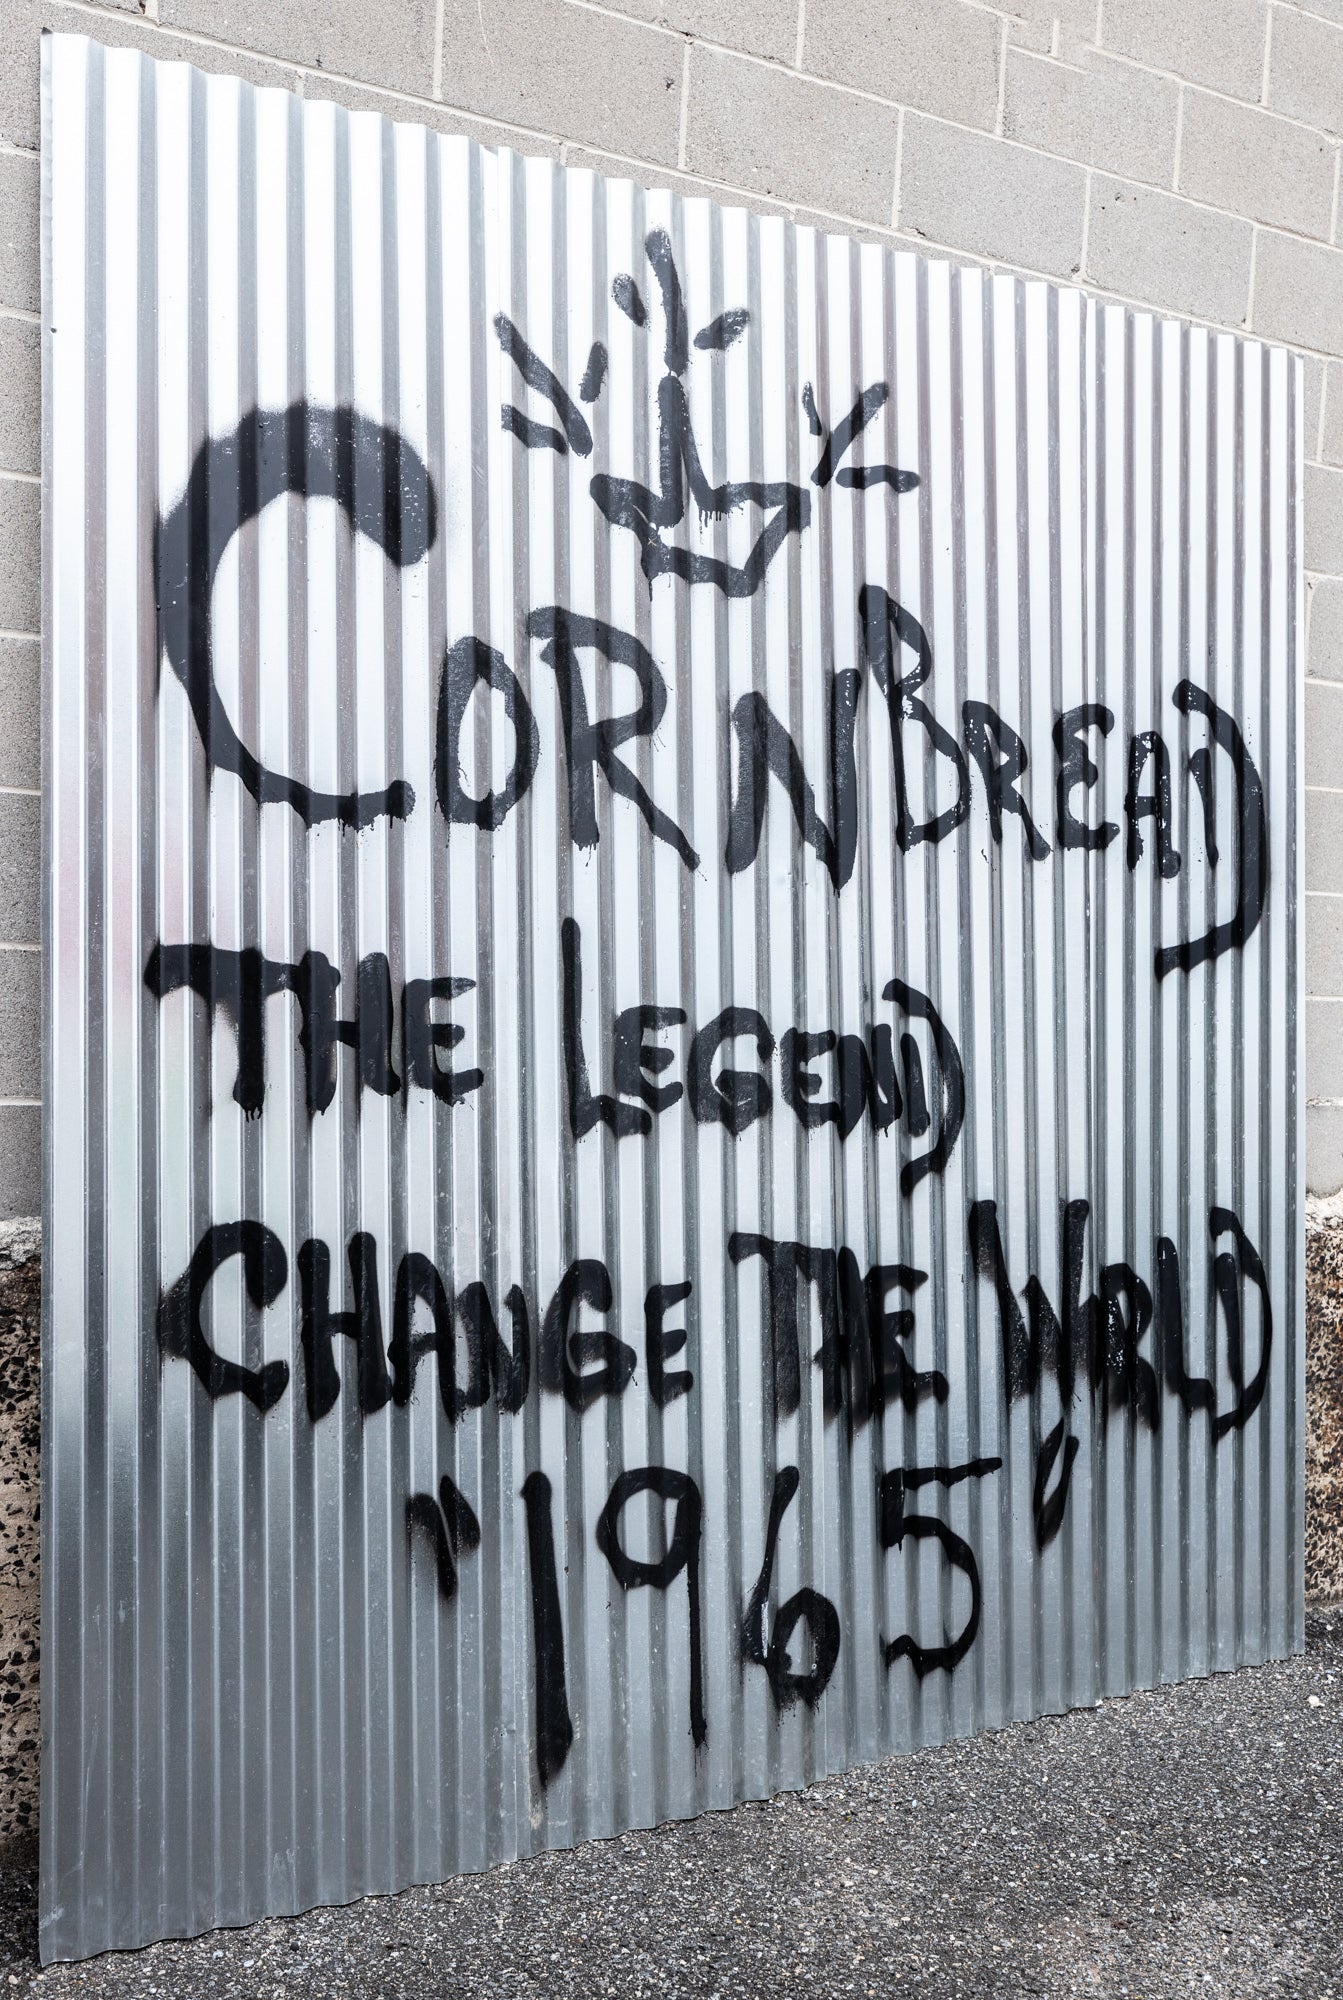 CORNBREAD
THE LEGEND
CHANGE THE WORLD
"1965"